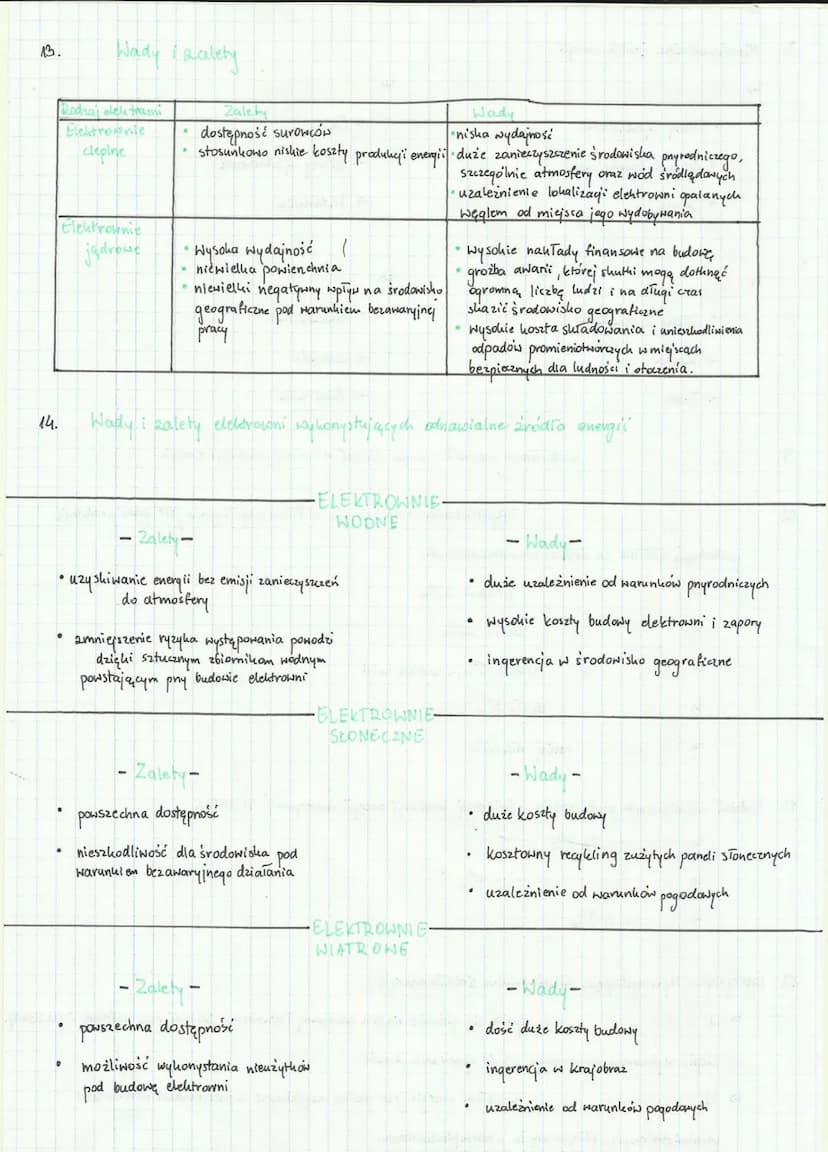 13. Wady i zalety
Rodzaj elektrowni Zalety Wady
Elektrownie
cieplne
• dostępność surowców
• stosunkowo niskie koszty produkcji energii
• niska wydajność
• duże zanieczyszczenie środowiska przyrodniczego,
szczególnie atmosfery oraz wód śródlądowych
• uzależnienie lokalizacji elektrowni opalanych
węglem od miejsca jego wydobywania
Elektrownie
jądrowe
• wysoka wydajność
• niewielka powierzchnia
• niewielki negatywny wpływ na środowisko
geograficzne pod warunkiem bezawaryjnej
pracy
• wysokie nakłady finansowe na budowę
• groźba awarii, której skutki mogą dotknąć
ogromną liczbę ludzi i na długi czas
skazić środowisko geograficzne
• wysokie koszta składowania i unieszkodliwienia
odpadów promieniotwórczych w miejscach
bezpiecznych dla ludności i otoczenia.
14. Wady i zalety elektrowni wykorzystujących odnawialne źródła energii
ELEKTROWNIE
WODNE
- Zalety -
• uzyskiwanie energii bez emisji zanieczyszczeń
do atmosfery
• zmniejszenie ryzyka występowania powodzi
dzięki sztucznym zbiornikom wodnym
powstającym przy budowie elektrowni
- Wady -
• duże uzależnienie od warunków przyrodniczych
• wysokie koszty budowy elektrowni i zapory
• ingerencja w środowisko geograficzne
ELEKTROWNIE
SŁONECZNE
- Zalety -
• powszechna dostępność
• nieszkodliwość dla środowiska pod
warunkiem bezawaryjnego działania
- Wady -
• duże koszty budowy
• kosztowny recykling zużytych paneli słonecznych
• uzależnienie od warunków pogodowych
ELEKTROWNIE
WIATROWE
- Zalety -
• powszechna dostępność
• możliwość wykorzystania nieużytków
pod budowę elektrowni
- Wady -
• dość duże koszty budowy
• ingerencja w krajobraz
• uzależnienie od warunków pogodowych